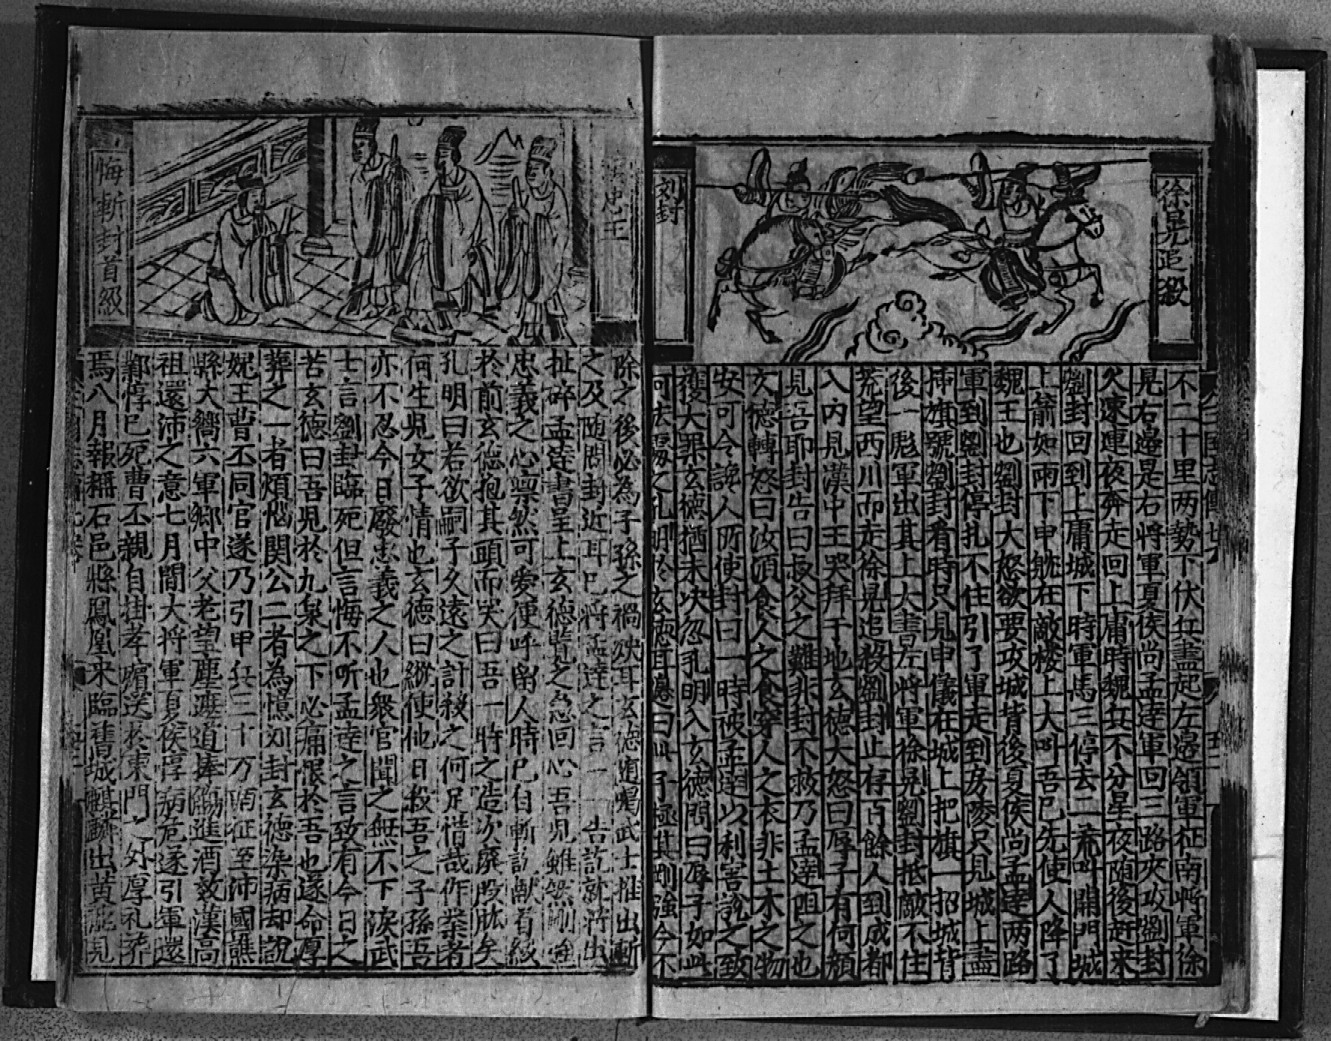 徐晃追殺
劉封
不二十里两勢下伏兵盡起左邉領軍征南将軍徐
晃右邉是右將軍夏侯尚孟達軍回三路夾攻劉封
欠速連夜奔走回上庸時魏兵不分星夜随後赶来
劉封回到上庸城下時軍馬三停去二荒叫開門城
上箭如雨下申躭在敵樓上大叫吾已先使人降了
魏王也劉封大怒欲要攻城背後夏侯尚孟達两路
軍到劉封停扎不住引了軍走到房陵只見城上盡
揷旗號劉封看時只見申儀在城上把旗一招城背
後一彪軍出其上大書左將軍徐晃劉封抵敵不住
荒望西川而走徐晃追殺劉封止存百餘人到成都
入内見漢中王哭拜于地玄德大怒曰辱子有何顔
見吾耶封告曰叔父之難非封不救乃孟達阻之也
玄德轉怒曰汝須食人之食穿人之衣非土木之物
安可令讒人所使封曰一時被孟達以利害說之致
獲大罪玄德猶未决忽孔明入玄德問曰辱子如此
何法處之孔明於玄德耳邉曰此子極其剛強今不
漢中王
悔斬封首級
除之後必為子孫之禍殃耳玄德遂喝武士推出斬
之及随問封近耳巳將孟達之言一一告訴就將出
扯碎孟達書呈上玄德覧之急回心吾兒雖然剛
忠義之心凛然可愛便呼留人時已自斬訖献首級
於前玄德抱其頭而哭曰吾一時之造次廢股肱矣
孔明曰若欲嗣子久遠之計殺之何足惜哉作業者
何生兒女子情也玄德曰縱使他日殺吾之子孫吾
亦不忍今日廢忠義之人也衆官聞之無不下淚武
士言劉封臨死但言悔不听孟達之言致有今日之
苦玄德曰吾兒於九泉之下必痛恨於吾也遂命厚
葬之一者煩惱関公二者為憶刘封玄德染病却說
魏王曹丕同官遂乃引甲兵三十万南征至沛國譙
縣大饗六軍鄉中父老望塵遮道捧觴進酒效漢高
祖還沛之意七月間大将軍夏侯惇病危遂引軍還
鄴惇已死曹丕親自掛孝瘤送於東門之外厚礼葬
焉八月報稱石邑縣鳳凰来臨舊城麒麟出黄龍見